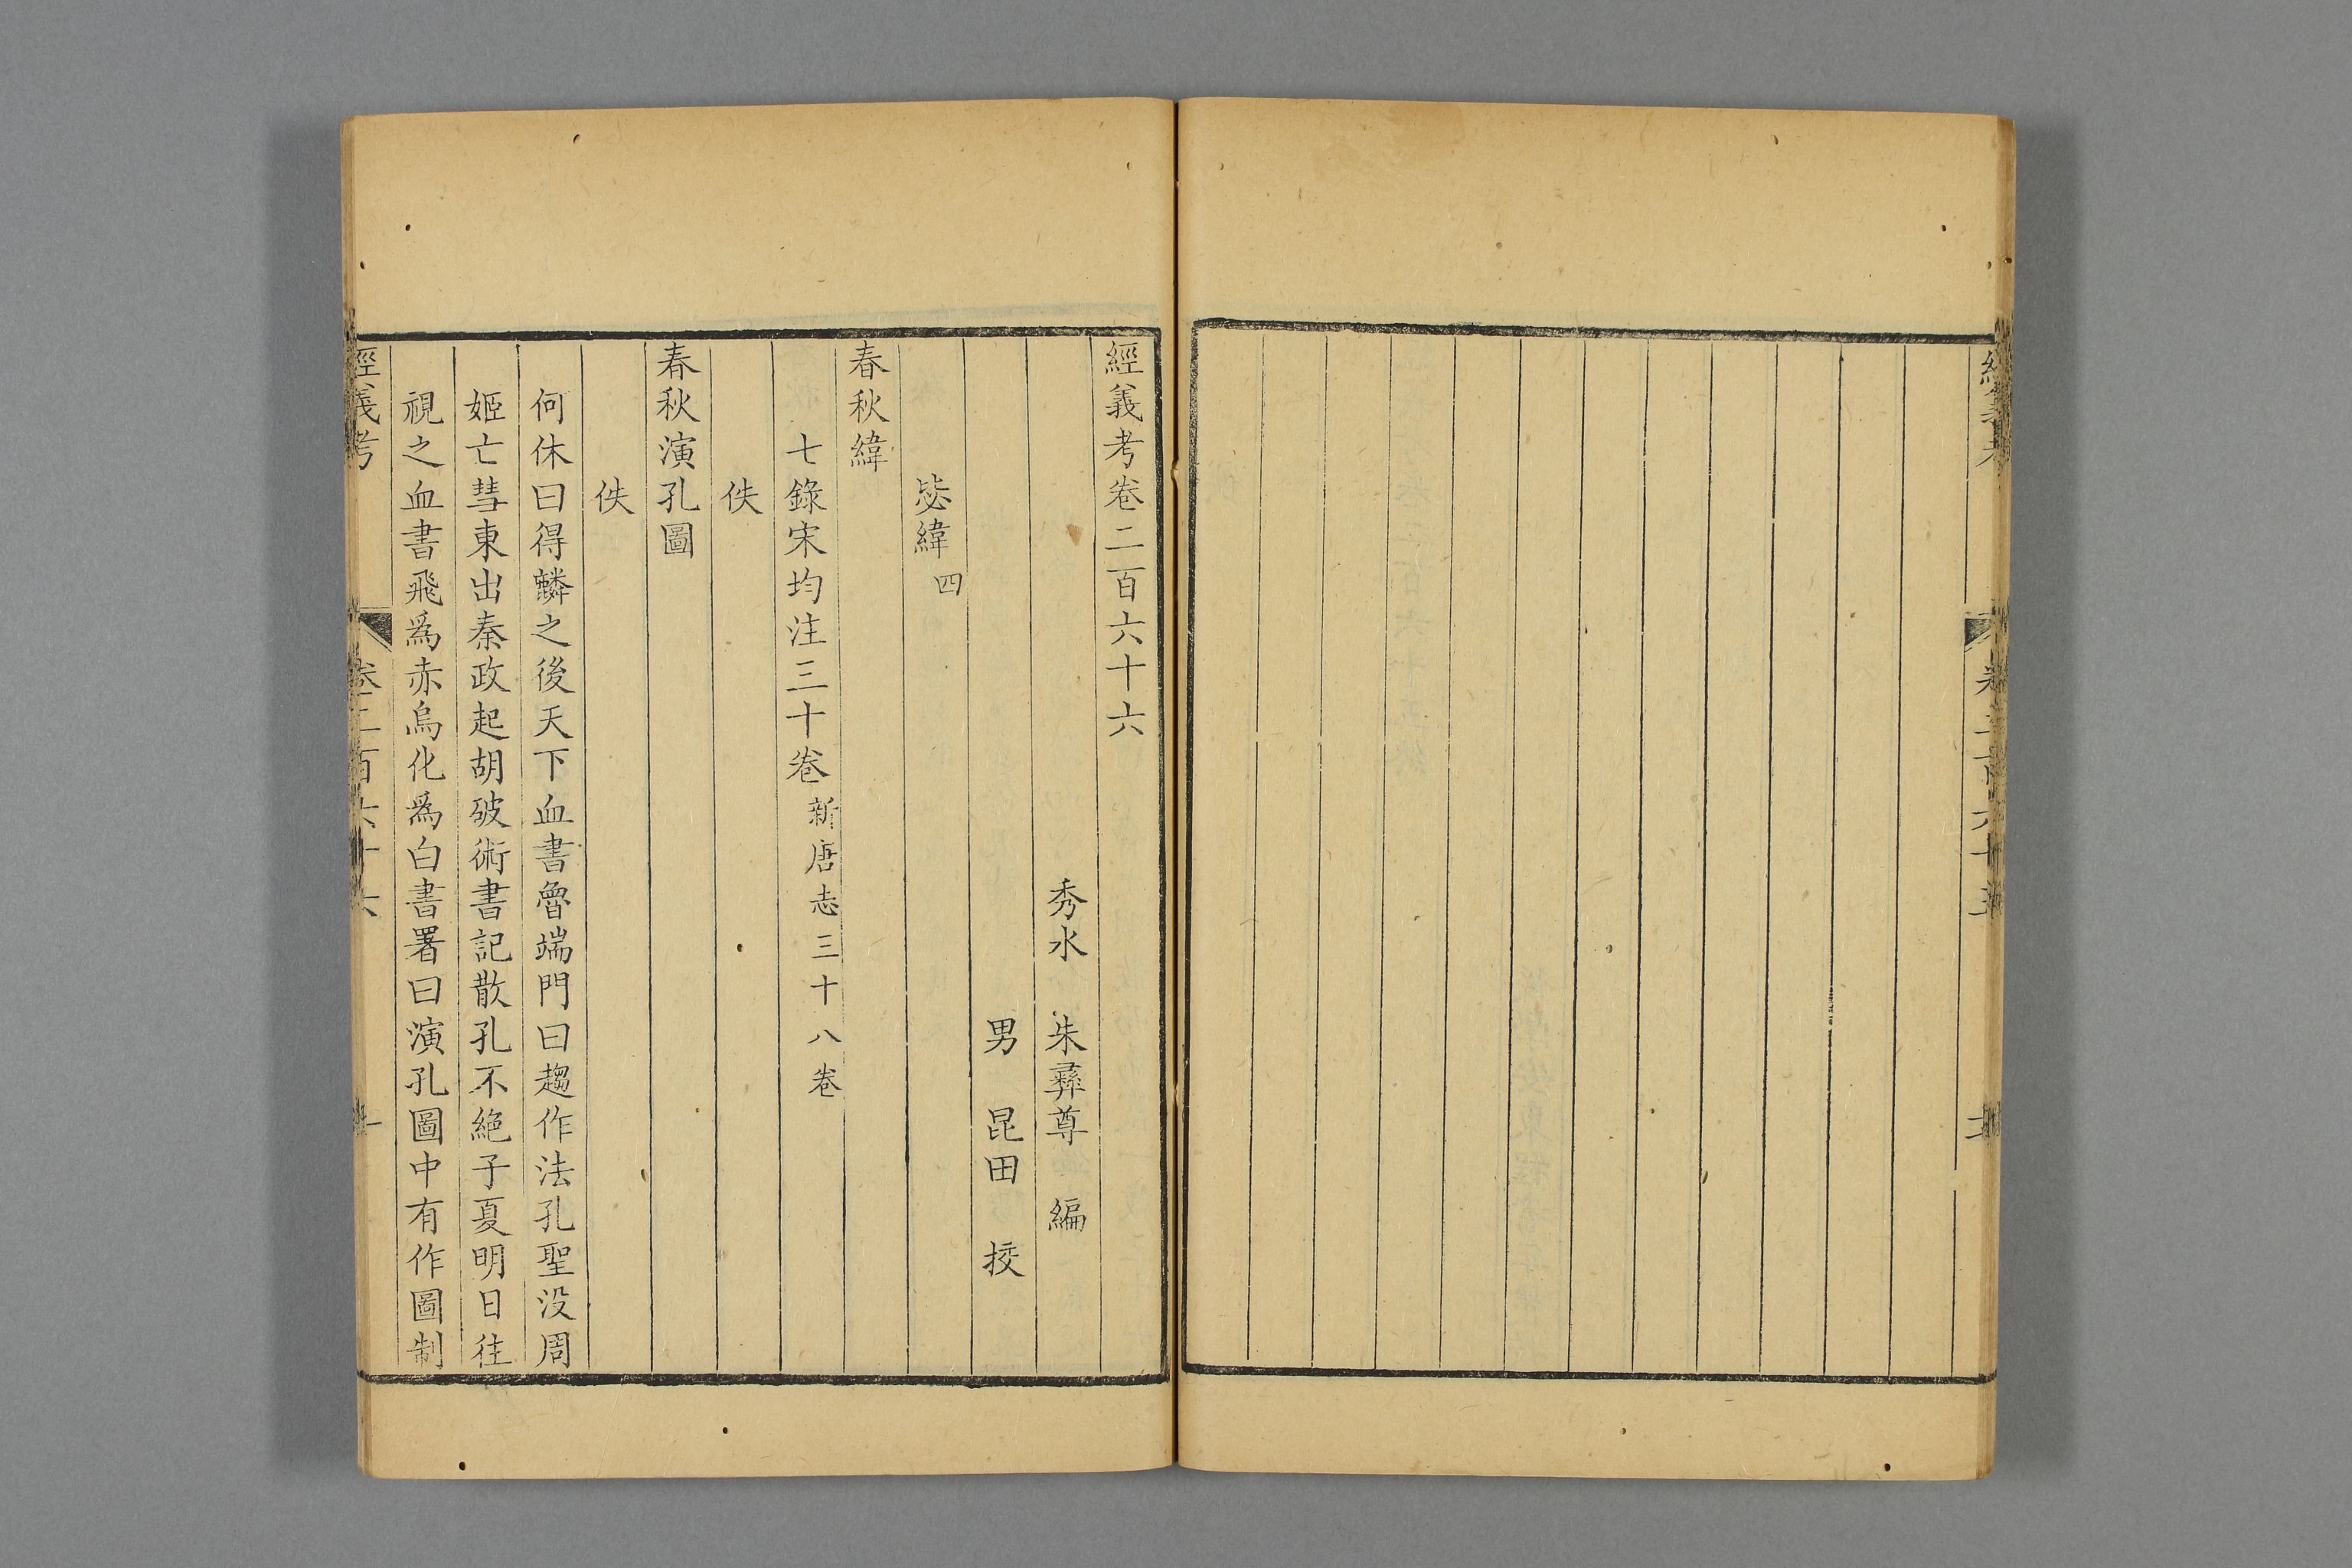 經義考卷二百六十六
秀水 朱彛尊 編
男 昆田 挍
毖緯 四
春秋緯
七錄宋均注三十卷 新唐志三十八卷
佚
春秋演孔圖
佚
何休曰得麟之後天下血書魯端門曰趨作法孔聖没周
姬亡彗東出秦政起胡破術書記散孔不絶子夏明日往
視之血書飛爲赤烏化爲白書署曰演孔圖中有作圖制
經義考 卷二百六十六 一